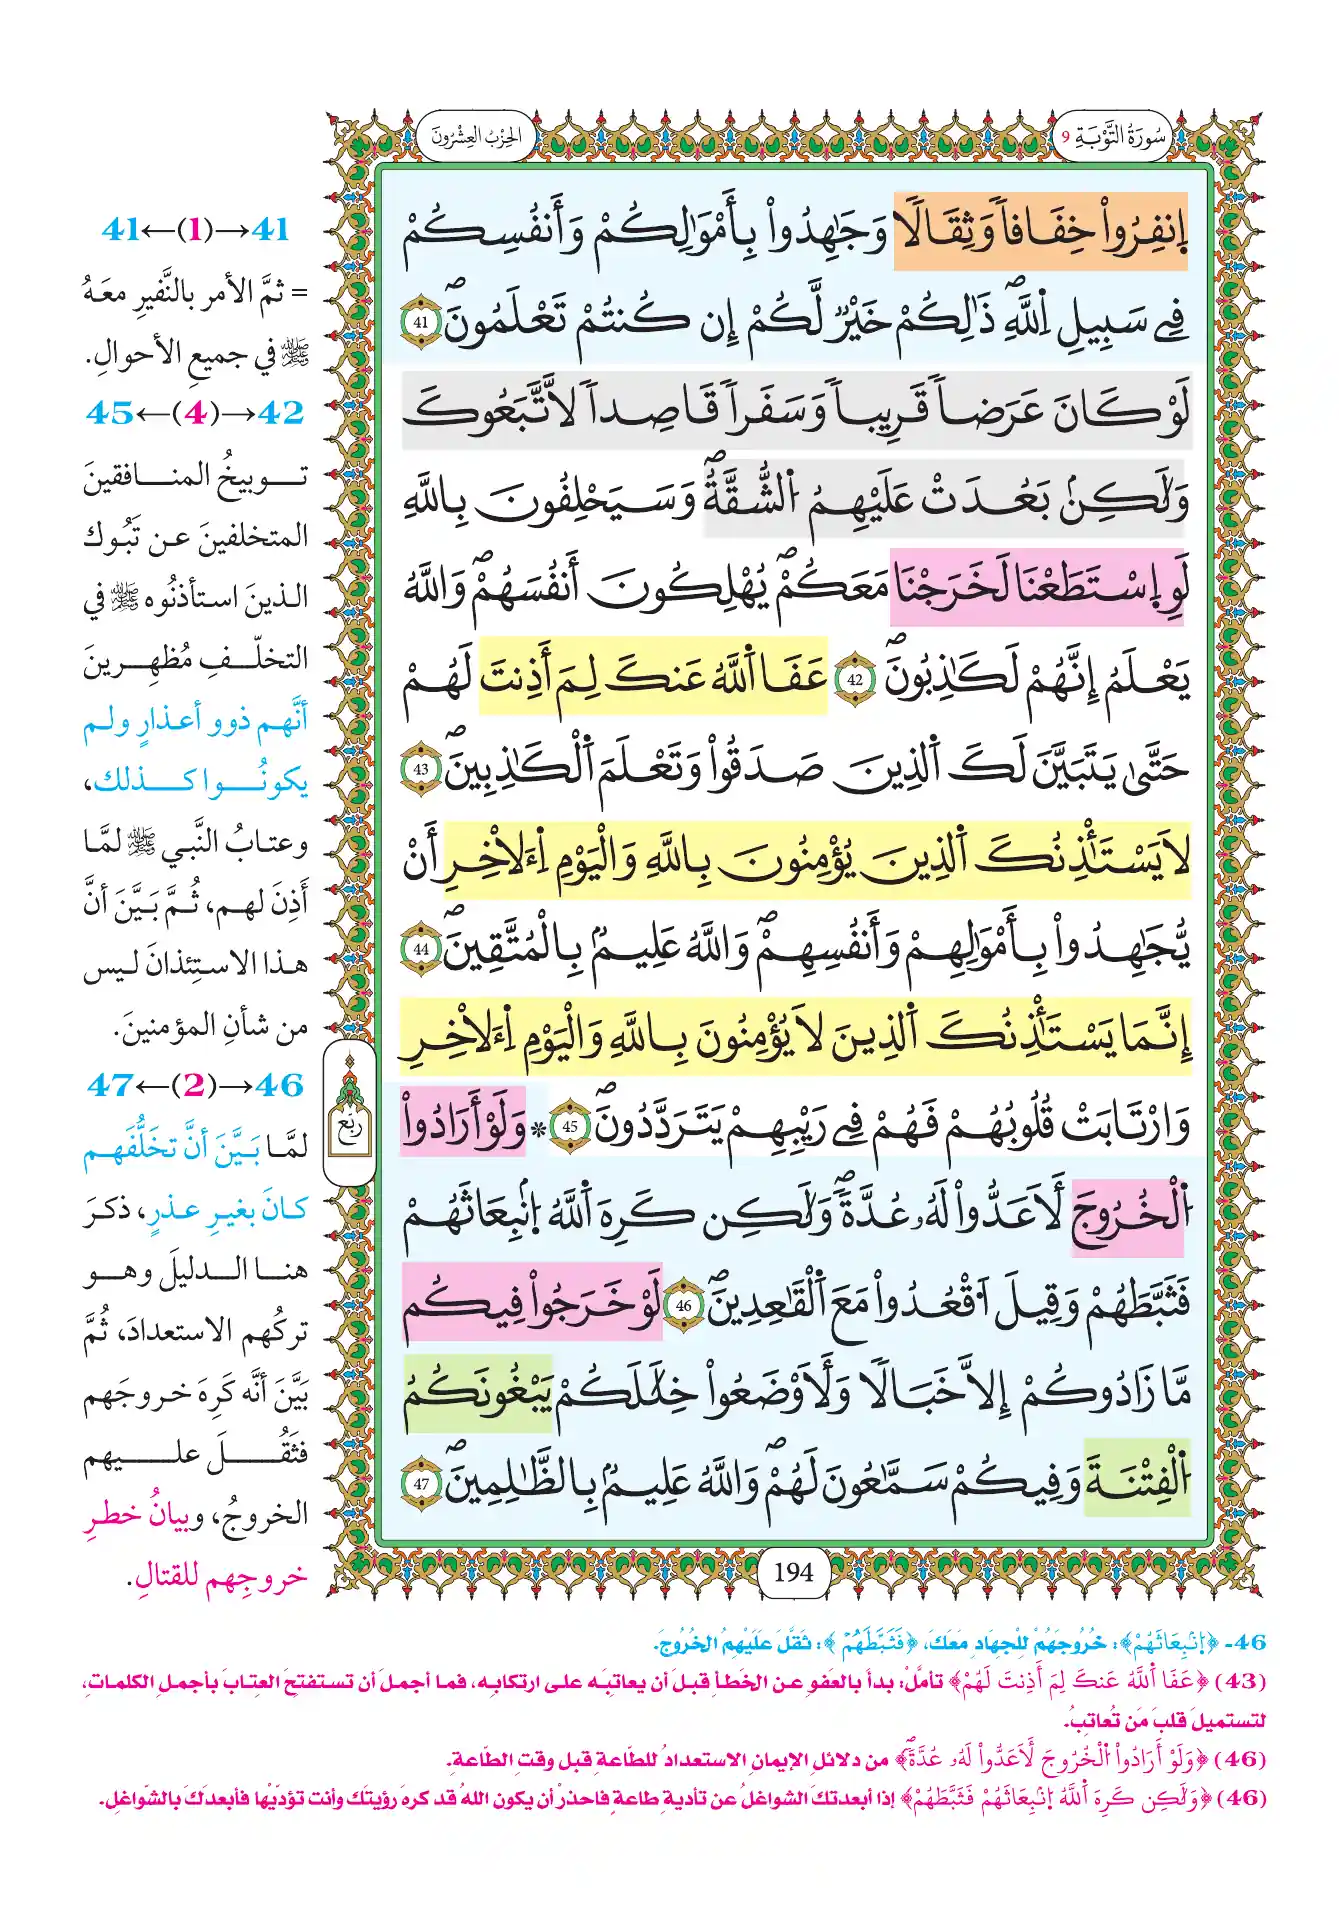 سُورَةُ التَّوْبَةِ 9
الحِزْبُ العِشْرُونَ
اِ۪نفِرُواْ خِفَافاٗ وَثِقَالاٗ وَجَٰهِدُواْ بِأَمْوَٰلِكُمْ وَأَنفُسِكُمْ
فِے سَبِيلِ اِ۬للَّهِۖ ذَٰلِكُمْ خَيْرٞ لَّكُمْ إِن كُنتُمْ تَعْلَمُونَۖ 41
لَوْ كَانَ عَرَضاٗ قَرِيباٗ وَسَفَراٗ قَاصِداٗ لَّاتَّبَعُوكَ
وَلَٰكِنۢ بَعُدَتْ عَلَيْهِمُ اُ۬لشُّقَّةُۖ وَسَيَحْلِفُونَ بِاللَّهِ
لَوِ اِ۪سْتَطَعْنَا لَخَرَجْنَا مَعَكُمْۖ يُهْلِكُونَ أَنفُسَهُمْۖ وَاللَّهُ
يَعْلَمُ إِنَّهُمْ لَكَٰذِبُونَۖ 42 عَفَا اَ۬للَّهُ عَنكَ لِمَ أَذِنتَ لَهُمْ
حَتَّىٰ يَتَبَيَّنَ لَكَ اَ۬لذِينَ صَدَقُواْ وَتَعْلَمَ اَ۬لْكَٰذِبِينَۖ 43
لَا يَسْتَْٔذِنُكَ اَ۬لذِينَ يُؤْمِنُونَ بِاللَّهِ وَالْيَوْمِ اِ۬لَاخِرِ أَنْ
يُّجَٰهِدُواْ بِأَمْوَٰلِهِمْ وَأَنفُسِهِمْۖ وَاللَّهُ عَلِيمُۢ بِالْمُتَّقِينَۖ 44
إِنَّمَا يَسْتَْٔذِنُكَ اَ۬لذِينَ لَا يُؤْمِنُونَ بِاللَّهِ وَالْيَوْمِ اِ۬لَاخِرِ
وَارْتَابَتْ قُلُوبُهُمْ فَهُمْ فِے رَيْبِهِمْ يَتَرَدَّدُونَۖ 45 * وَلَوْ أَرَادُواْ
اُ۬لْخُرُوجَ لَأَعَدُّواْ لَهُۥ عُدَّةٗۖ وَلَٰكِن كَرِهَ اَ۬للَّهُ اُ۪نۢبِعَاثَهُمْ
فَثَبَّطَهُمْ وَقِيلَ اَ۟قْعُدُواْ مَعَ اَ۬لْقَٰعِدِينَۖ 46 لَوْ خَرَجُواْ فِيكُم
مَّا زَادُوكُمْ إِلَّا خَبَالاٗ وَلَأَوْضَعُواْ خِلَٰلَكُمْ يَبْغُونَكُمُ
اُ۬لْفِتْنَةَ وَفِيكُمْ سَمَّٰعُونَ لَهُمْۖ وَاللَّهُ عَلِيمُۢ بِالظَّٰلِمِينَۖ 47
ربع
194
41←(1)→41
= ثمَّ الأمر بالنَّفيرِ معَهُ
ﷺ في جميعِ الأحوالِ.
45←(4)→42
تـوبيخُ المنـافقينَ
المتخلفينَ عـن تَبُوك
الـذينَ اسـتأذنُوه ﷺ في
التخلّـفِ مُظهِـرينَ
أنَّهـم ذوو أعـذارٍ ولـم
يكونُـوا كـذلك،
وعتـابُ النَّبـي ﷺ لمَّـا
أَذِنَ لهـم، ثُـمَّ بَـيَّنَ أنَّ
هـذا الاسـتِئذانَ لـيس
من شأنِ المؤمنينَ.
47←(2)→46
لمَّـا بَـيَّنَ أنَّ تخلُّفَهـم
كـانَ بغيـرِ عـذرٍ، ذكـرَ
هنـا الـدليلَ وهـو
تركُهم الاستعدادَ، ثُمَّ
بَيَّنَ أنَّه كَرِهَ خروجَهم
فثَقُـلَ علـيهم
الخروجُ، وبيانُ خطرِ
خروجِهم للقتالِ.
46- ﴿اُ۪نۢبِعَاثَهُمْ﴾: خُرُوجَهُمْ لِلْجِهَادِ مَعَكَ، ﴿فَثَبَّطَهُمْ﴾: ثَقَّلَ عَلَيْهِمُ الخُرُوجَ.
(43) ﴿عَفَا اَ۬للَّهُ عَنكَ لِمَ أَذِنتَ لَهُمْ﴾ تأملْ: بدأ بالعفوِ عن الخطأِ قبلَ أن يعاتبَه على ارتكابِه، فما أجملَ أن تستفتحَ العتابَ بأجملِ الكلماتِ،
لتستميلَ قلبَ مَن تُعاتبُ.
(46) ﴿وَلَوْ أَرَادُواْ اُ۬لْخُرُوجَ لَأَعَدُّواْ لَهُۥ عُدَّةٗۖ﴾ من دلائل الإيمانِ الاستعدادُ للطّاعةِ قبل وقتِ الطّاعةِ.
(46) ﴿وَلَٰكِن كَرِهَ اَ۬للَّهُ اُ۪نۢبِعَاثَهُمْ فَثَبَّطَهُمْ﴾ إذا أبعدتكَ الشواغلُ عن تأديةِ طاعةٍ فاحذرْ أن يكون اللهُ قد كرهَ رؤيتَك وأنت تؤدّيْها فأبعدَكَ بالشّواغلِ.